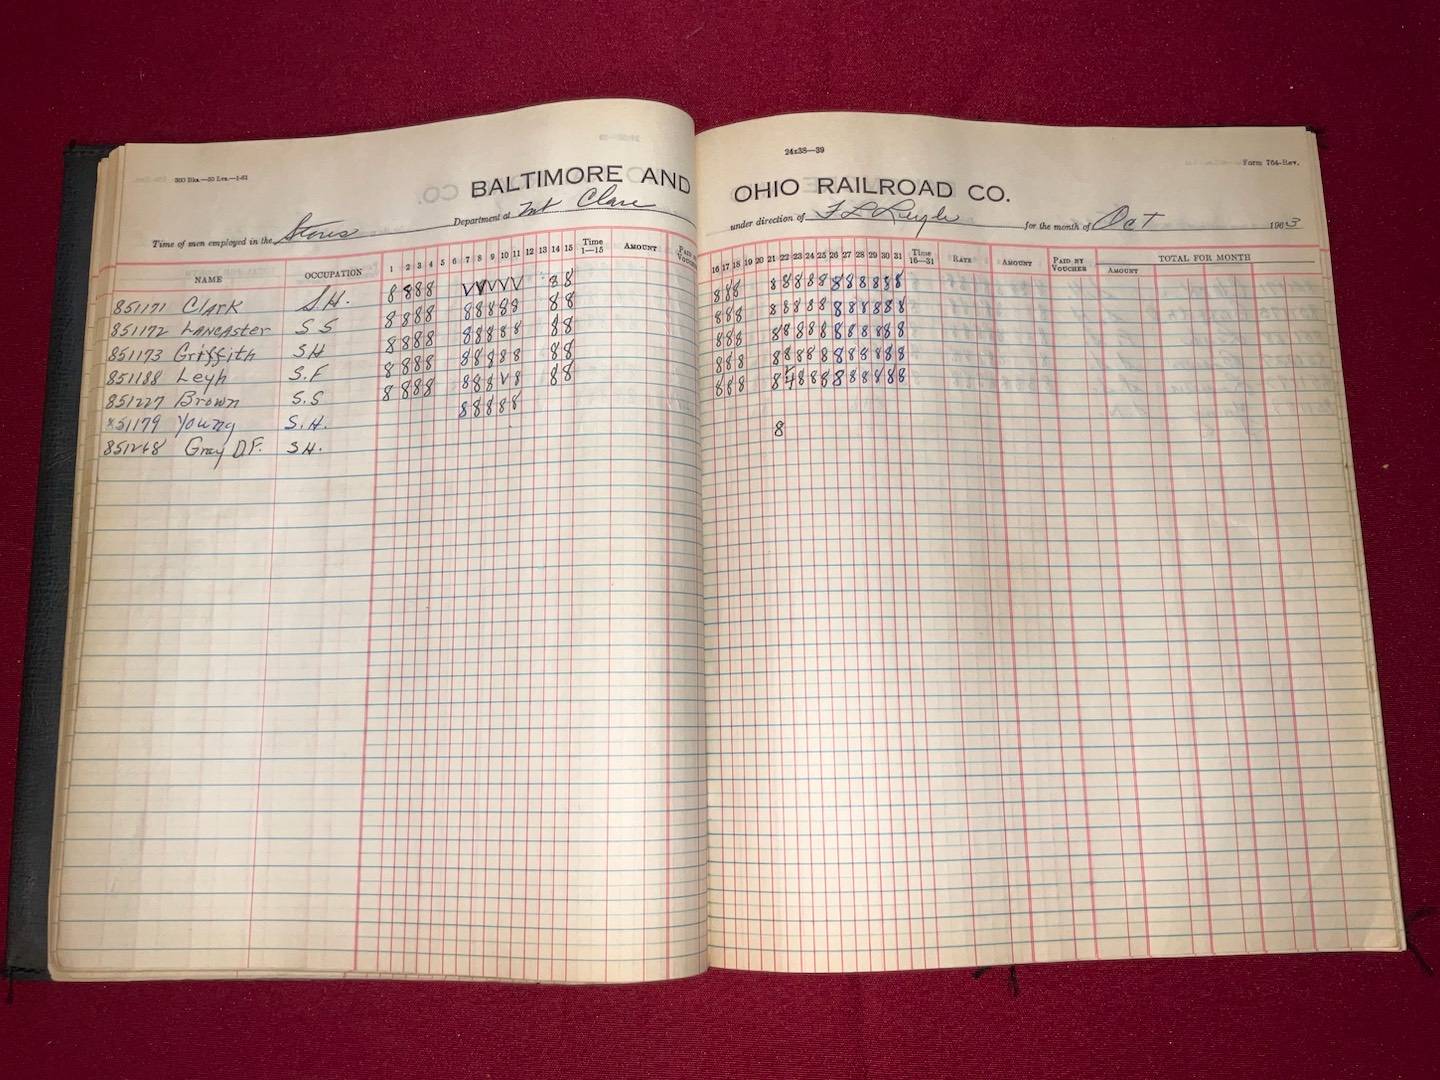 360 Bks.—50 Lvs.—1-61
24x38—39
Form 764-Rev.
BALTIMORE AND OHIO RAILROAD CO.
Time of men employed in the Stores Department at Mt Clare under direction of F L for the month of Oct 1963
NAME OCCUPATION 1 2 3 4 5 6 7 8 9 10 11 12 13 14 15 Time 1—15 AMOUNT PAID BY VOUCHER 16 17 18 19 20 21 22 23 24 25 26 27 28 29 30 31 Time 16—31 RATE AMOUNT PAID BY VOUCHER AMOUNT TOTAL FOR MONTH
851171 Clark S.H. 8 8 8 8 V V V V V 8 8 8 8 8 8 8 8 8 8 8 8 8 8 8 8
851172 Lancaster S S 8 8 8 8 8 8 8 8 8 8 8 8 8 8 8 8 8 8 8 8 8 8 8 8 8
851173 Griffith S H 8 8 8 8 8 8 8 8 8 8 8 8 8 8 8 8 8 8 8 8 8 8 8 8 8
851188 Leyh S.F 8 8 8 8 8 8 8 8 8 8 8 8 8 8 8 8 8 8 8 8 8 8 8 8 8
851227 Brown S.S 8 8 8 8 8 8 8 V 8 8 8 8 8 8 8 8 8 8 8 8 8 8 8 8
851179 Young S.H. 8 8 8 8 8
851268 Gray D.F. S H. 8